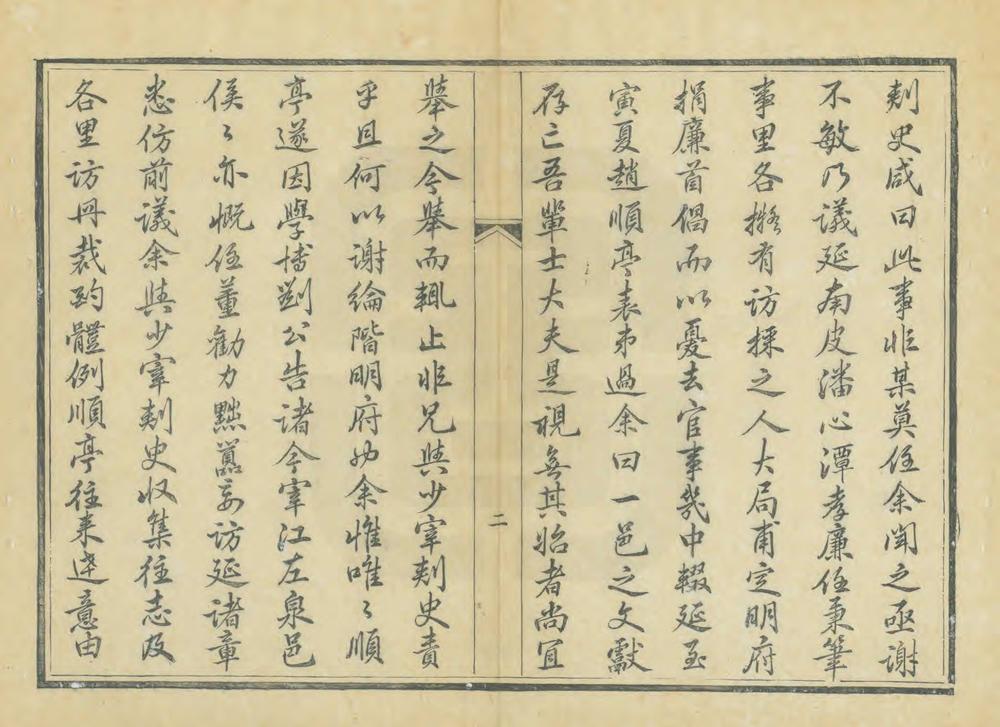 剡史咸曰此事非某莫任余聞之亟謝
不敏乃議延南皮潘心潭孝廉任秉筆
事里各擬有訪採之人大局甫定明府
捐廉首倡而以憂去官事幾中輟延至
寅夏趙順亭表弟過余曰一邑之文獻
存亡吾輩士大夫是視無其始者尚宜
二
舉之今舉而輒止非兄與少宰剡史責
乎且何以謝綸階明府也余惟唯〻順
亭遂因學博劉公告諸今宰江左泉邑
侯〻亦慨任董勸力黜囂妄訪延諸章
悉仿前議余與少宰剡史收集往志及
各里訪冊裁酌體例順亭往來達意由